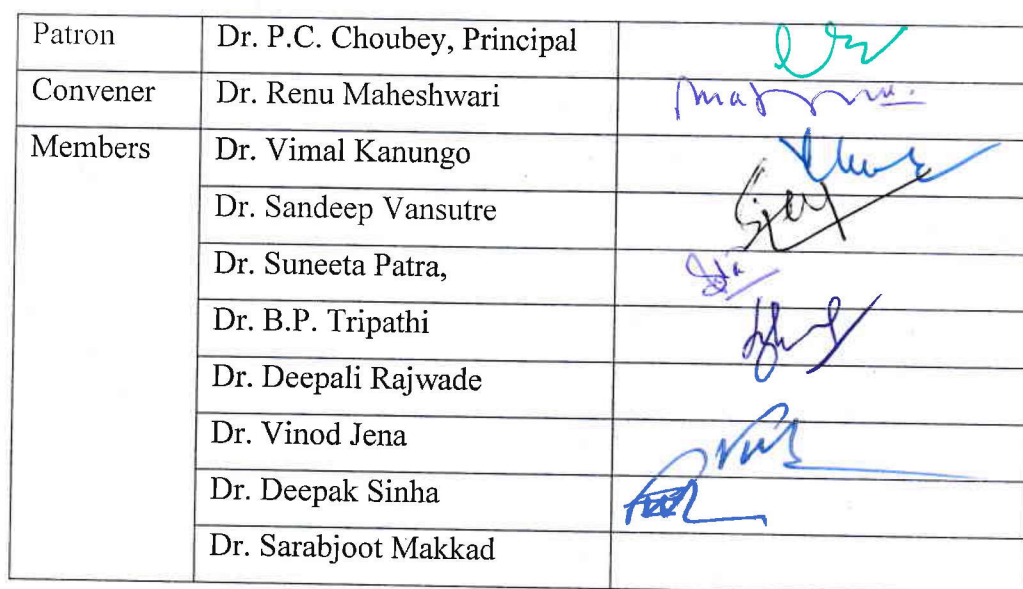 Patron Dr. P.C. Choubey, Principal
Convener Dr. Renu Maheshwari
Members Dr. Vimal Kanungo
Dr. Sandeep Vansutre
Dr. Suneeta Patra,
Dr. B.P. Tripathi
Dr. Deepali Rajwade
Dr. Vinod Jena
Dr. Deepak Sinha
Dr. Sarabjoot Makkad